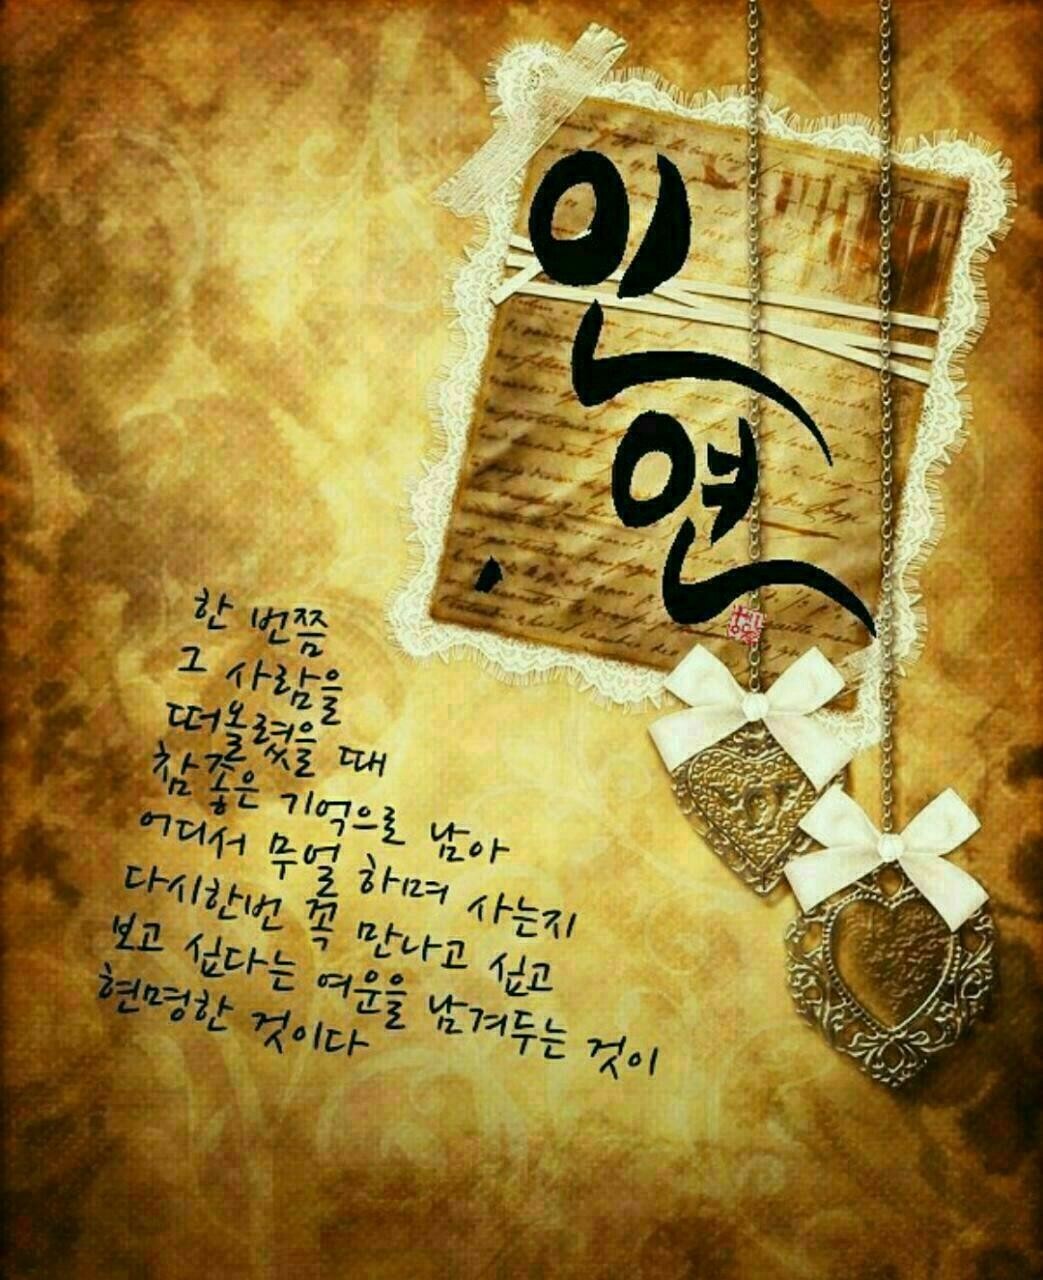 인
연
한 번쯤
그 사람을
떠올렸을 때
참 좋은 기억으로 남아
어디서 무얼 하며 사는지
다시한번 꼭 만나고 싶고
보고 싶다는 여운을 남겨두는 것이
현명한 것이다